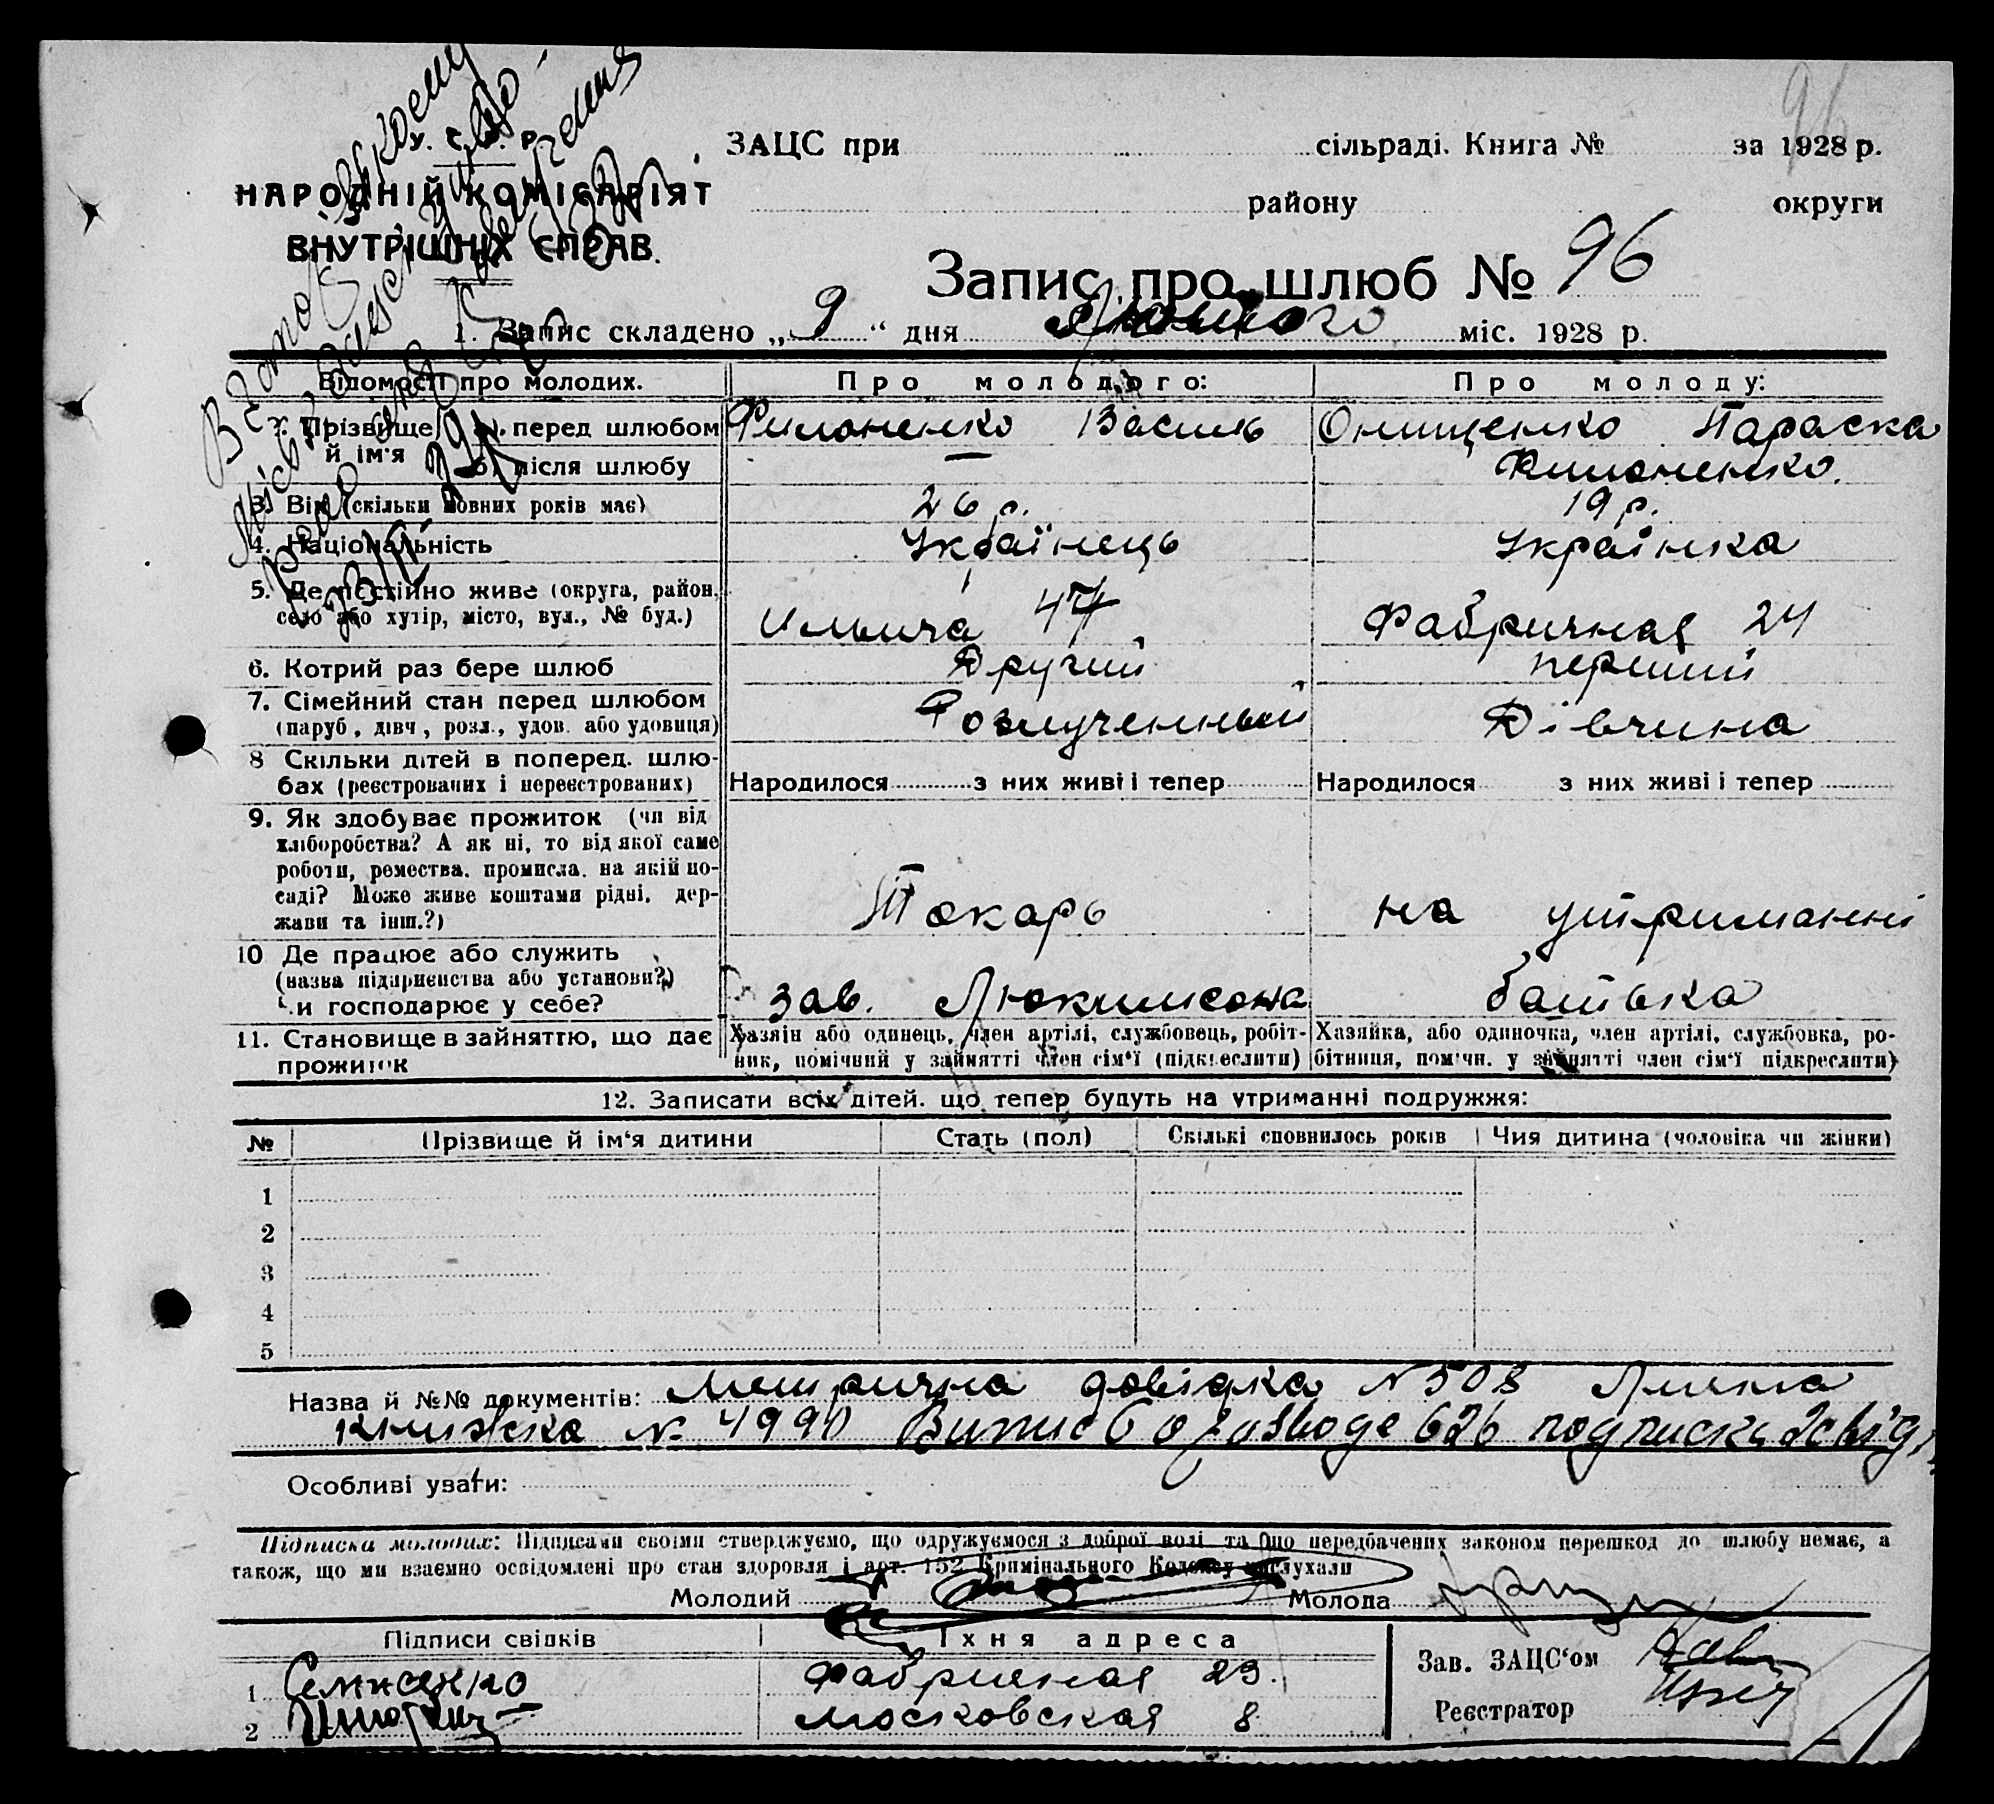 96
У. С. Р. Р.
НАРОДНІЙ КОМІСАРІЯТ
ВНУТРІШНІХ СПРАВ.
ЗАЦС при сільраді. Книга № за 1928 р.
району округи
Запис про шлюб № 96
1. Запис складено „9“ дня Лютого міс. 1928 р.
Відомості про молодих. Про молодого: Про молоду:
2. Прізвище й ім'я
а. перед шлюбом Филоненко Василь Онищенко Параска
б. після шлюбу — Филоненко.
3. Вік (скільки повних років має) 26 р. 19 р.
4. Національність Українець Українка
5. Де постійно живе (округа, район, село або хутір, місто, вул., № буд.) Ильича 47 Фабричная 24
6. Котрий раз бере шлюб Другий перший
7. Сімейний стан перед шлюбом Розлученный Дівчина
(паруб., дівч., розл., удов. або удовиця)
8 Скільки дітей в поперед. шлю-
бах (реєстрованих і нереєстрованих) Народилося з них живі і тепер Народилося з них живі і тепер
9. Як здобуває прожиток (чи від
хліборобства? А як ні, то від якої саме
роботи, ремества. промисла. на якій по-
саді? Може живе коштами рідні, дер-
жави та інш.?) Токарь на утриманні
10 Де працює або служить
(назва підприємства або установи?)
Чи господарює у себе? зав. батька
11. Становище в зайняттю, що дає прожиток
Хазяїн або одинець, член артілі, службовець, робіт-
ник, помічний у зайнятті член сім'ї (підкреслити)
Хазяйка, або одиночка, член артілі, службовка, ро-
бітниця, помічн. у зайнятті член сім'ї підкреслити)
12. Записати всіх дітей. що тепер будуть на утриманні подружжя:
№ Прізвище й ім'я дитини Стать (пол) Скількі сповнилось років Чия дитина (чоловіка чи жінки)
1
2
3
4
5
Назва й №№ документів: Метрична довідка N 508 Лична
книжка N 4990 Випис о разводе 626 подписка
Особливі уваги:
Підписка молодих: Підписами своїми стверджуємо, що одружуємося з доброї волі та що передбачених законом перешкод до шлюбу немає, а
також, що ми взаємно освідомлені про стан здоровля і арт. 152 Кримінального Кодексу вислухали
Молодий Молода
Підписи свідків Їхня адреса
1 Фабричная 23.
2 Московская 8
Зав. ЗАЦС'ом
Реєстратор